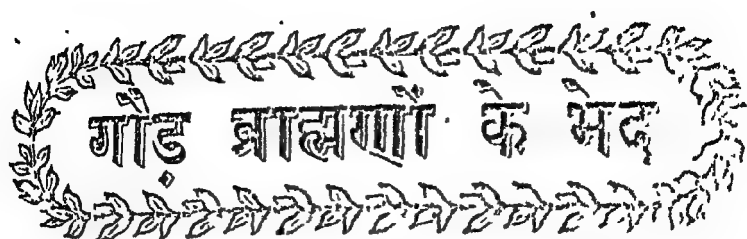 गौड़ ब्राह्मणों के भेद